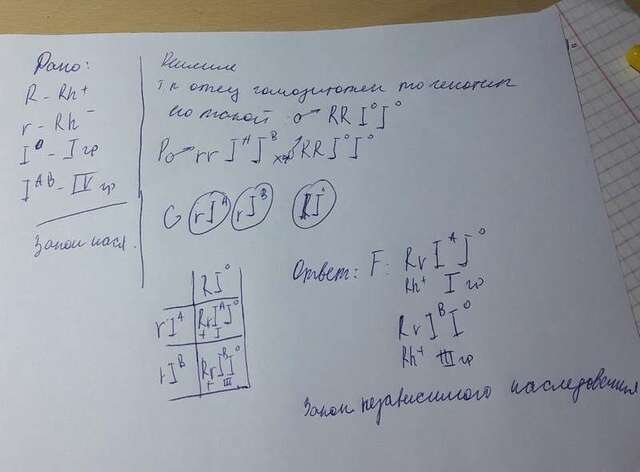 Дано:
R - Rh⁺
r - Rh⁻
I⁰ - I гр
I^AB - IV гр
Закон насл.
Решение
Т к отец гомозиготен то генотип
его такой: ♂ RR I⁰I⁰
P ♂ rr I^A I^B x ♂ RR I⁰ I⁰
G rI^A rI^B RI⁰
RI⁰
rI^A Rr I^A I⁰
+ I
rI^B Rr I^B I⁰
+ III
Ответ: F: Rr I^A I⁰
Rh⁺ I гр
Rr I^B I⁰
Rh⁺ III гр
Закон независимого наследования